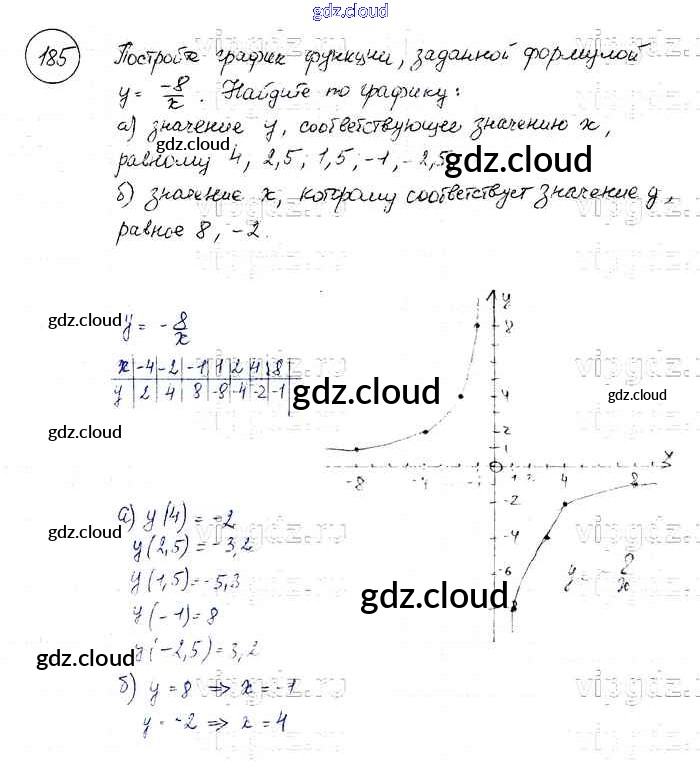 gdz.cloud
185 Постройте график функции, заданной формулой
y = -8/x . Найдите по графику:
а) значение y, соответствующее значению x,
равному 4, 2,5; 1,5; -1, -2,5
gdz.cloud
б) значение x, которому соответствует значение y,
равное 8, -2.
vipgdz.ru
gdz.cloud y = -8/x
x -4 -2 -1 1 2 4 8
y 2 4 8 -8 -4 -2 -1
gdz.cloud
gdz.cloud
gdz.cloud
y
8
4
2
1
x
-8 -4 -1 0 1 2 4 8
-2
-4
-6
y = -8/x
а) y(4) = -2
gdz.cloud
y(2,5) = -3,2
y(1,5) = -5,3
gdz.cloud
y(-1) = 8
gdz.cloud
y(-2,5) = 3,2
б) y = 8 ⇒ x = -1
vipgdz.ru
y = -2 ⇒ x = 4